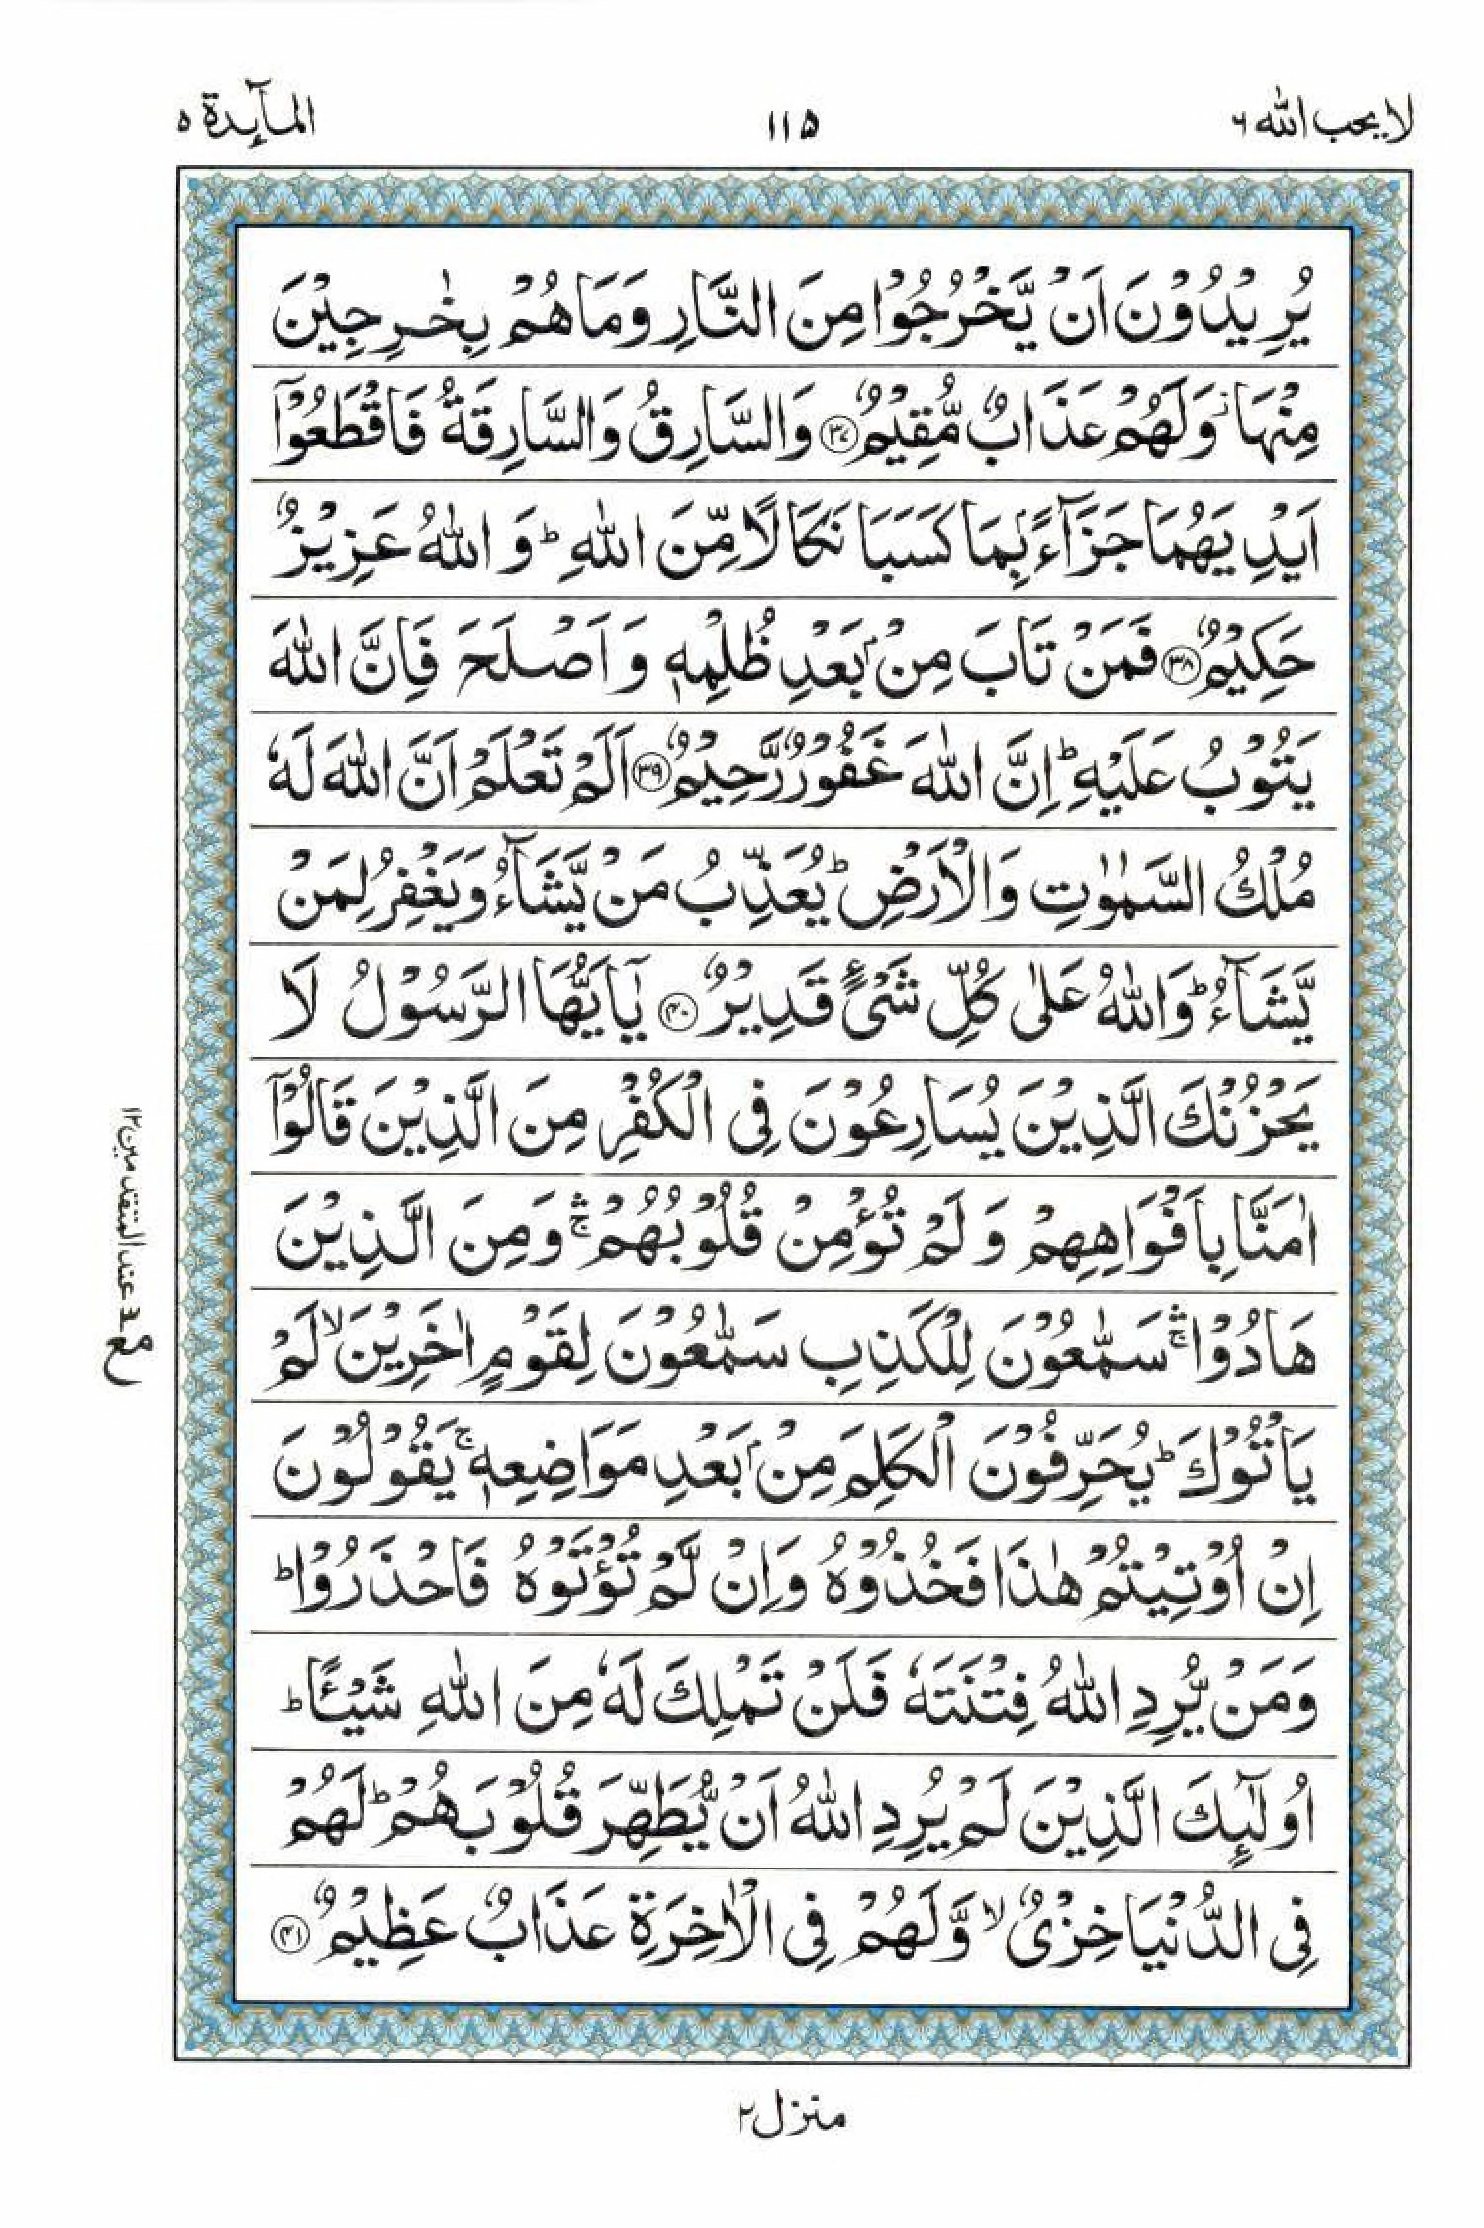 لا یحب اللہ ۶
۱۱۵
المآىِٕدة ۵
یُرِیْدُوْنَ اَنْ یَّخْرُجُوْا مِنَ النَّارِ وَمَا هُمْ بِخٰرِجِیْنَ
مِنْهَا ز وَلَهُمْ عَذَابٌ مُّقِیْمٌ ﴿۳۷﴾ وَالسَّارِقُ وَالسَّارِقَةُ فَاقْطَعُوْۤا
اَیْدِیَهُمَا جَزَآءًۢ بِمَا كَسَبَا نَكَالًا مِّنَ اللّٰهِ ؕ وَ اللّٰهُ عَزِیْزٌ
حَكِیْمٌ ﴿۳۸﴾ فَمَنْ تَابَ مِنْۢ بَعْدِ ظُلْمِهٖ وَ اَصْلَحَ فَاِنَّ اللّٰهَ
یَتُوْبُ عَلَیْهِ ؕ اِنَّ اللّٰهَ غَفُوْرٌ رَّحِیْمٌ ﴿۳۹﴾ اَلَمْ تَعْلَمْ اَنَّ اللّٰهَ لَهٗ
مُلْكُ السَّمٰوٰتِ وَالْاَرْضِ ؕ یُعَذِّبُ مَنْ یَّشَآءُ وَیَغْفِرُ لِمَنْ
یَّشَآءُ ؕ وَاللّٰهُ عَلٰی كُلِّ شَیْءٍ قَدِیْرٌ ﴿۴۰﴾ یٰۤاَیُّهَا الرَّسُوْلُ لَا
یَحْزُنْكَ الَّذِیْنَ یُسَارِعُوْنَ فِی الْكُفْرِ مِنَ الَّذِیْنَ قَالُوْۤا
اٰمَنَّا بِاَفْوَاهِهِمْ وَ لَمْ تُؤْمِنْ قُلُوْبُهُمْ ۛۚ وَ مِنَ الَّذِیْنَ
هَادُوْا ۛۚ سَمّٰعُوْنَ لِلْكَذِبِ سَمّٰعُوْنَ لِقَوْمٍ اٰخَرِیْنَ ۙ لَمْ
یَاْتُوْكَ ؕ یُحَرِّفُوْنَ الْكَلِمَ مِنْۢ بَعْدِ مَوَاضِعِهٖ ۚ یَقُوْلُوْنَ
اِنْ اُوْتِیْتُمْ هٰذَا فَخُذُوْهُ وَاِنْ لَّمْ تُؤْتَوْهُ فَاحْذَرُوْا ؕ
وَمَنْ یُّرِدِ اللّٰهُ فِتْنَتَهٗ فَلَنْ تَمْلِكَ لَهٗ مِنَ اللّٰهِ شَیْـًٔا ؕ
اُولٰٓىِٕكَ الَّذِیْنَ لَمْ یُرِدِ اللّٰهُ اَنْ یُّطَهِّرَ قُلُوْبَهُمْ ؕ لَهُمْ
فِی الدُّنْیَا خِزْیٌ ۙ وَّلَهُمْ فِی الْاٰخِرَةِ عَذَابٌ عَظِیْمٌ ﴿۴۱﴾
عند المتقدمین ۱۲
منزل ۲